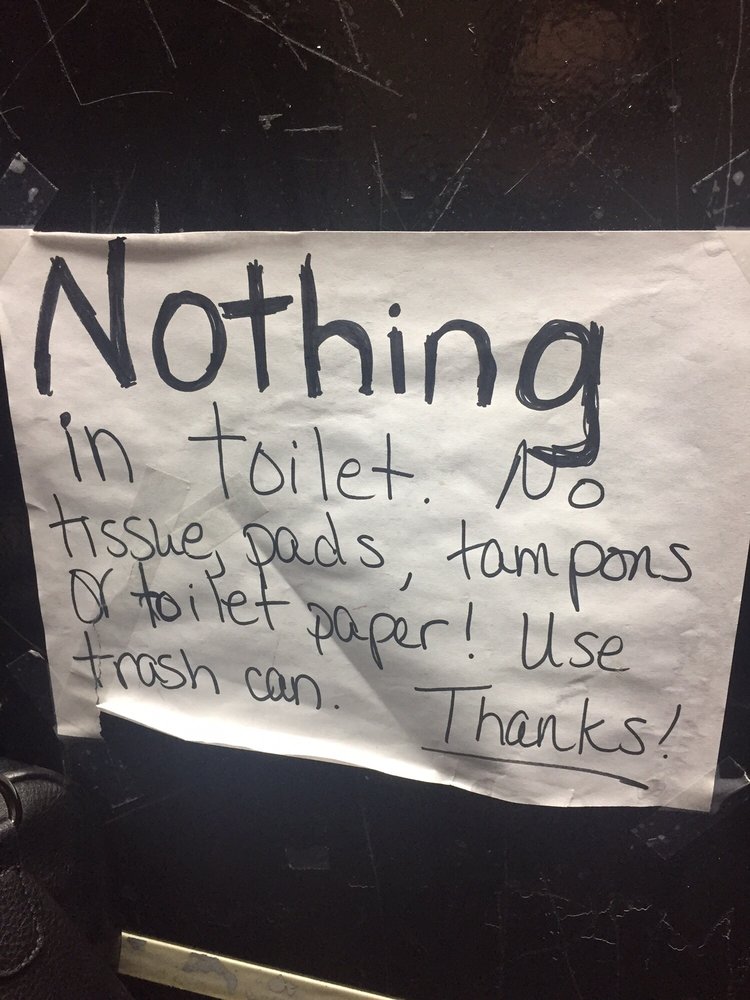 Nothing
in toilet. No
tissue, pads, tampons
or toilet paper! Use
trash can. Thanks!